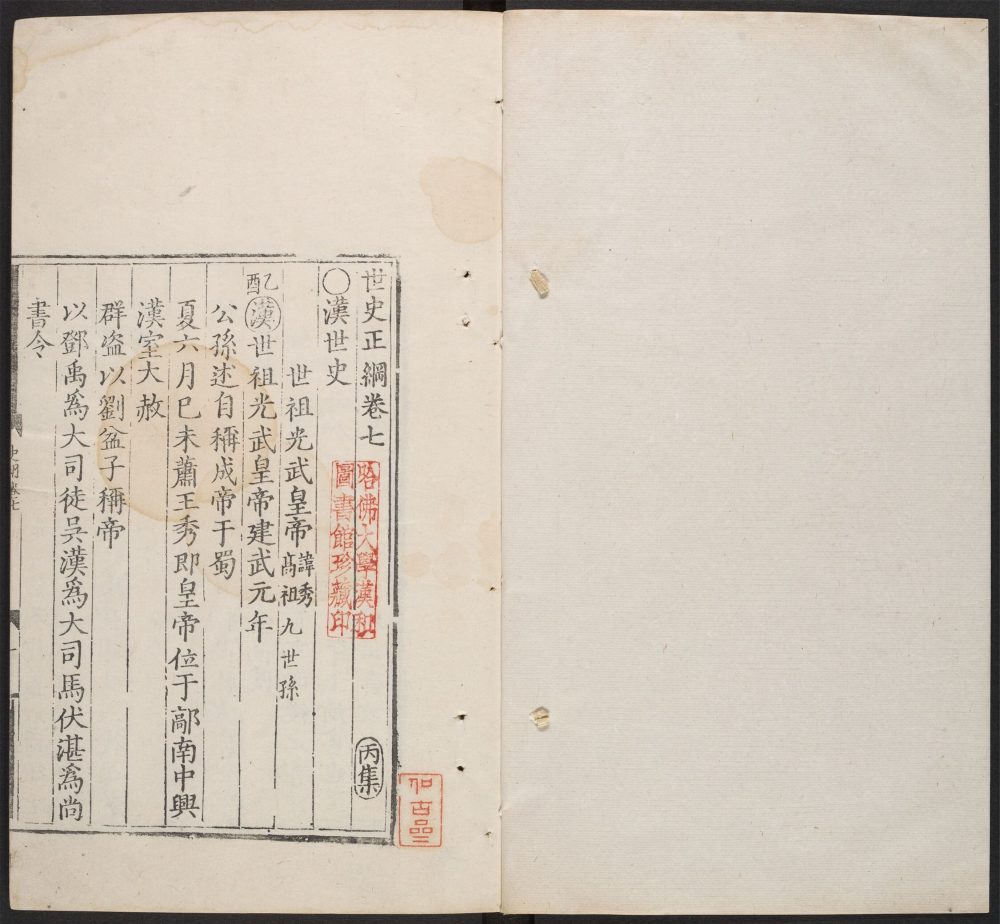 世史正綱卷七 丙集
○漢世史
世祖光武皇帝 諱秀高祖九世孫
乙酉 漢世祖光武皇帝建武元年
公孫述自稱成帝于蜀
夏六月巳未蕭王秀即皇帝位于鄗南中興
漢室大赦
群盗以劉盆子稱帝
以鄧禹爲大司徒吳漢爲大司馬伏湛爲尚
書令
哈佛大學漢和
圖書館珍藏印